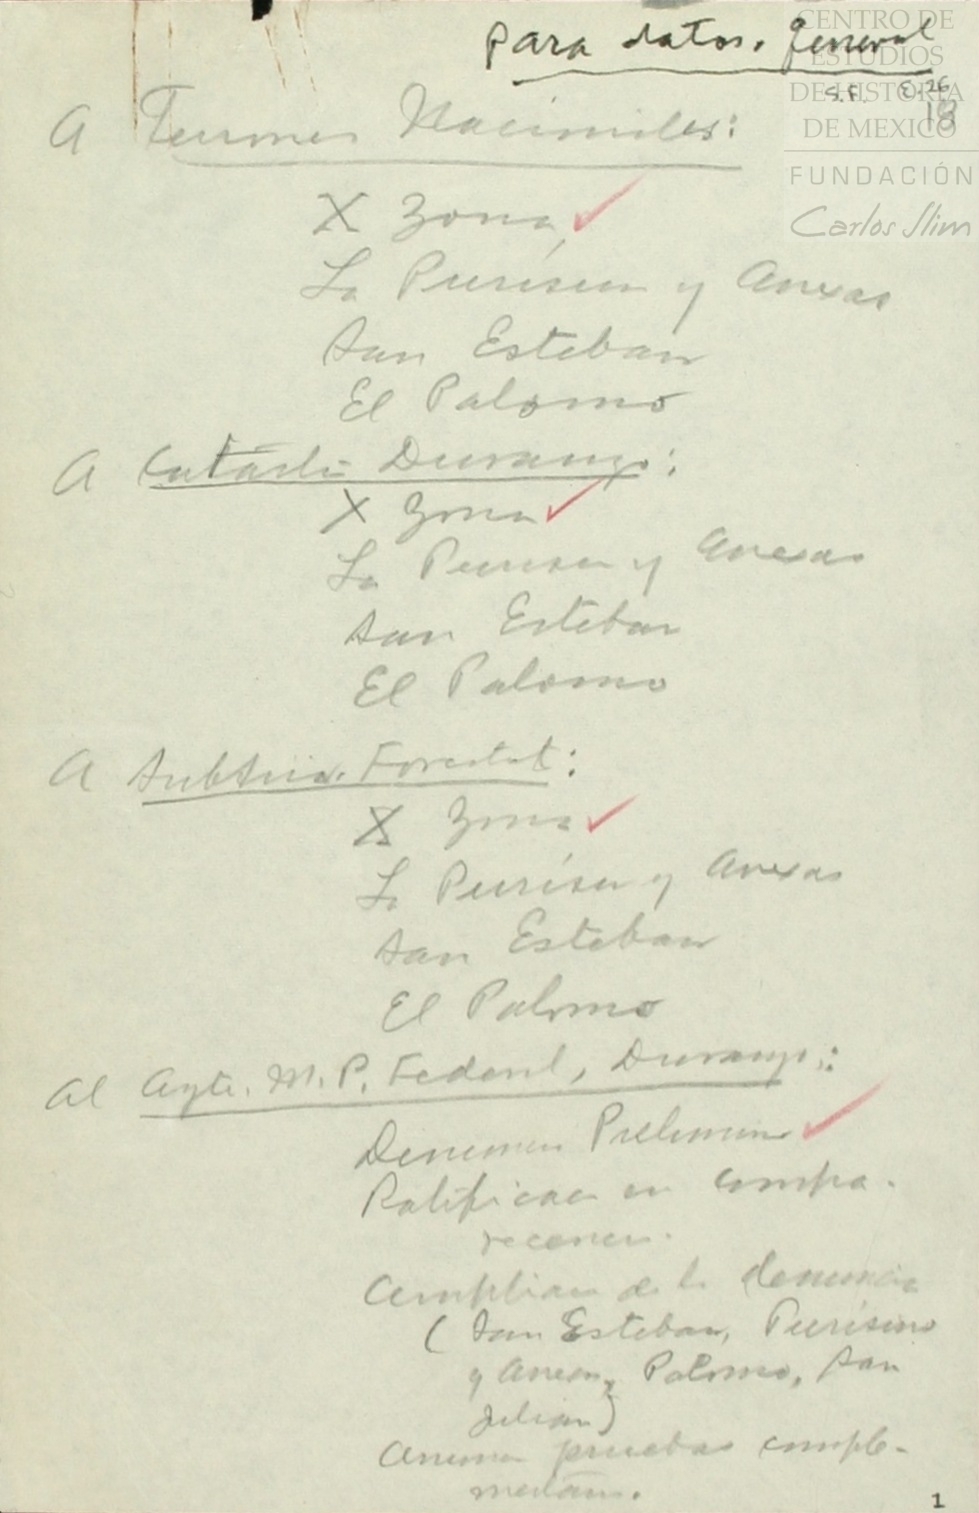 para datos. General
CENTRO DE
ESTUDIOS
DE HISTORIA
DE MEXICO
FUNDACIÓN
Carlos Slim
S.F. E-26
18
A Terrenos Nacionales:
X Zona
La Purísima y Anexas
San Esteban
El Palomo
A Catastro Durango:
X Zona
La Purisima y Anexas
San Esteban
El Palomo
A Forestal:
X Zona
La Purísima y Anexas
San Esteban
El Palomo
Al Agte. M. P. Federal, Durango:
Denuncia Preliminar
Ratificación en compa-
recencia.
Ampliación de la denuncia
(San Esteban, Purísima
y Anexas, Palomo, San
Julian)
pruebas comple-
mentarias.
1